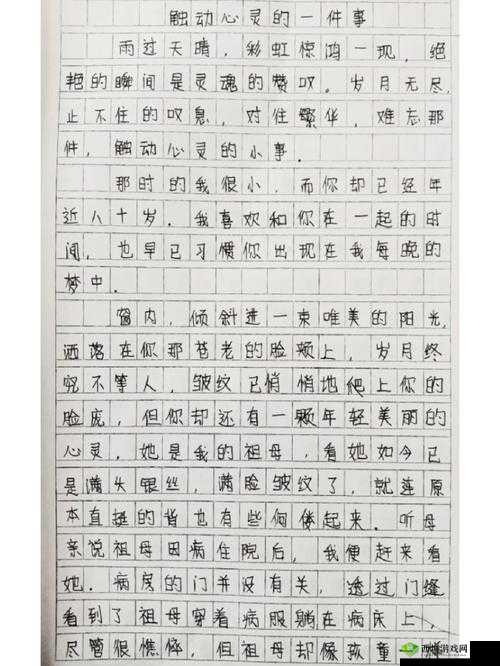 触动心灵的一件事
雨过天晴，彩虹惊鸿一现，绝
艳的瞬间是灵魂的赞叹。岁月无尽，
止不住的叹息，对住繁华，难忘那
件，触动心灵的小事．
那时的我很小，而你却已经年
近八十岁．我喜欢和你在一起的时
间，也早已习惯你出现在我每晚的
梦中．
窗内，倾斜进一束唯美的阳光，
洒落在你那苍老的脸颊上，岁月终
究不等人，皱纹已悄悄地爬上你的
脸庞，但你却还有一颗年轻美丽的
心灵，她是我的祖母，看她如今已
是满头银丝，满脸皱纹了，就连原
本直挺的背也有些佝偻起来．听母
亲说祖母因病住院后，我便赶来看
她．病房的门并没有关，透过门缝
看到了祖母穿着病服躺在病床上，
尽管很憔悴，但祖母却像孩童